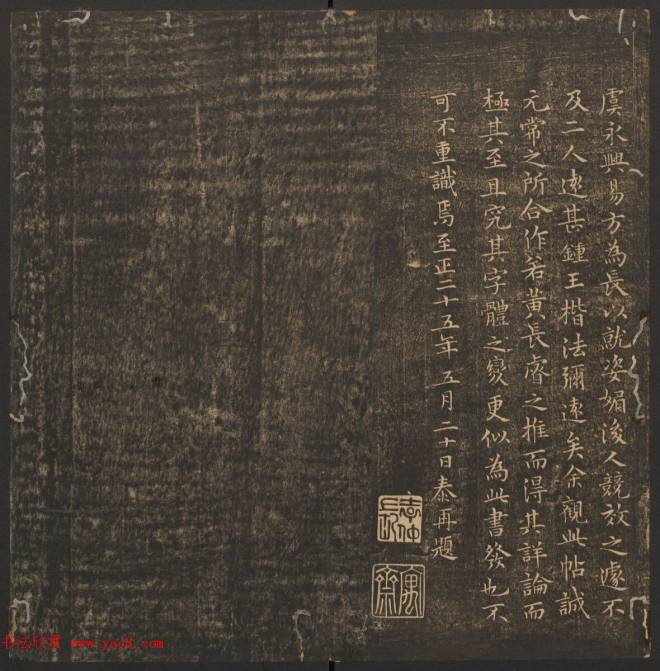 虞永興易方為長以就姿媚後人競效之遂不
及二人遠甚鍾王楷法彌遠矣余觀此帖誠
元常之所合作若黃長睿之推而得其詳論而
極其至且究其字體之變更似為此書發也不
可不重識焉至正二十五年五月二十日泰再題
書法欣賞 www.yac8.com